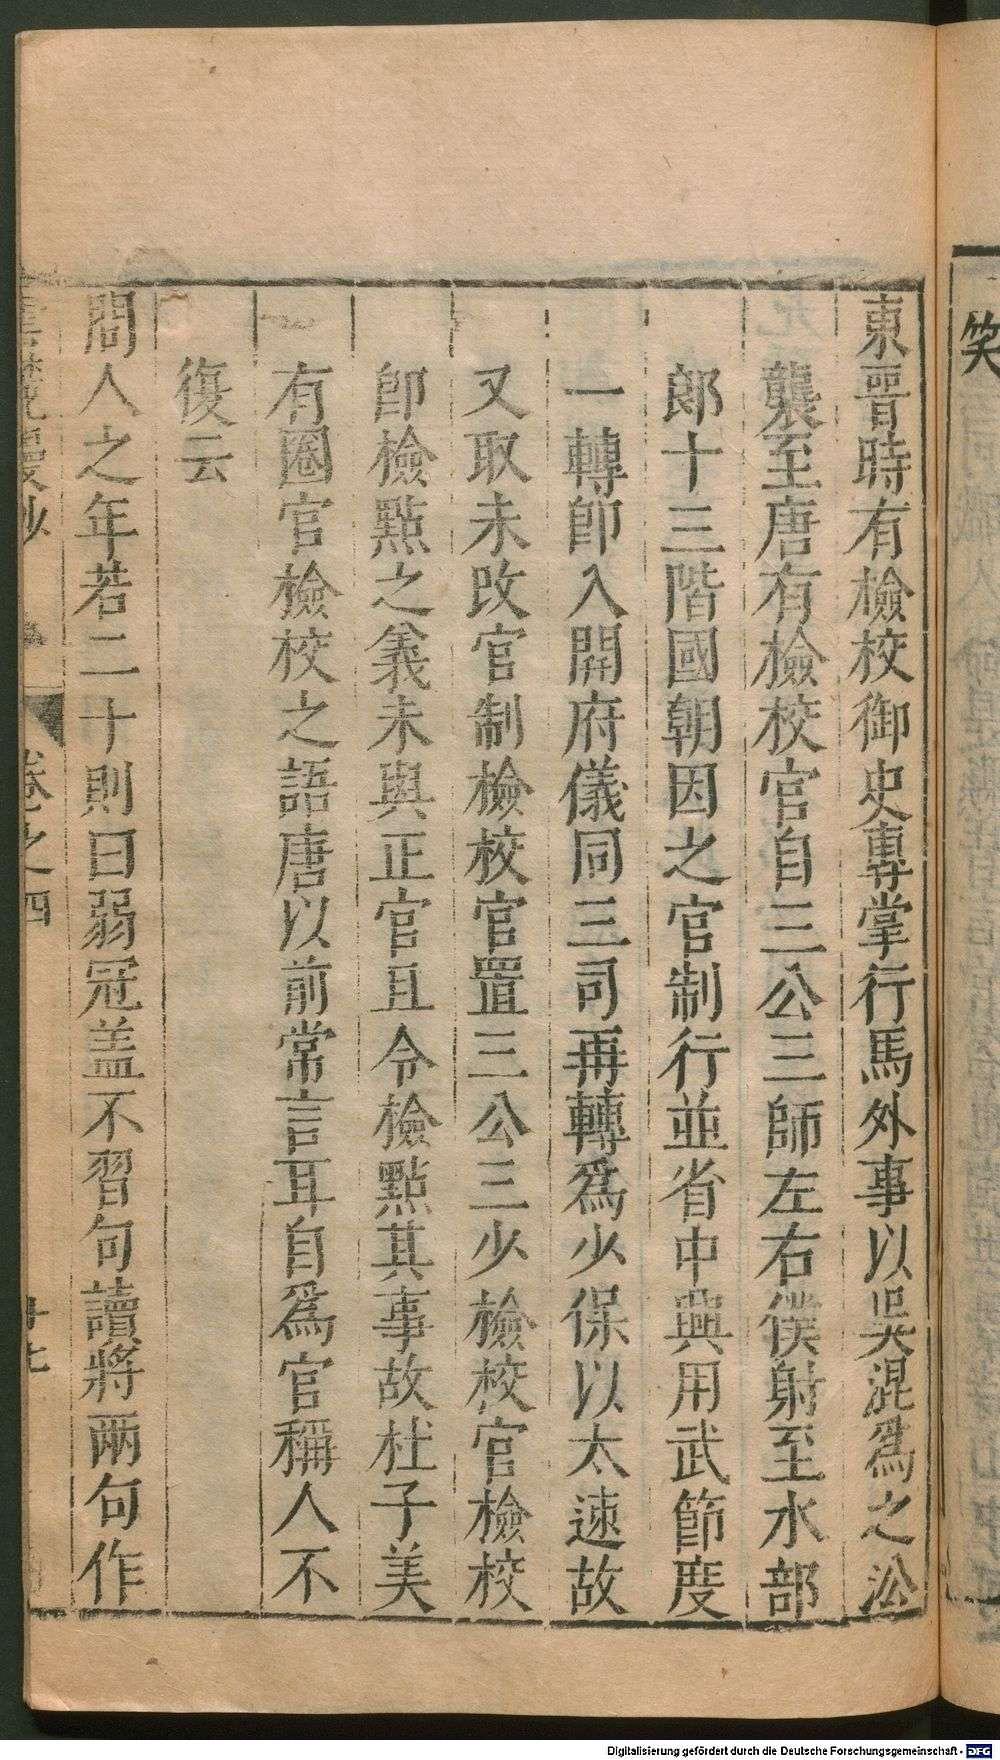 笑
東晋時有檢校御史專掌行馬外事以吳混爲之㳂
襲至唐有檢校官自三公三師左右僕射至水部
郎十三階國朝因之官制行並省中興用武節度
一轉卽入開府儀同三司再轉爲少保以太速故
又取未改官制檢校官置三公三少檢校官檢校
卽檢點之義未與正官且令檢點其事故杜子美
有圈官檢校之語唐以前常言耳自爲官稱人不
復云
問人之年若二十則曰弱冠盖不習句讀將兩句作
雲麓漫抄
卷之四
Digitalisierung gefördert durch die Deutsche Forschungsgemeinschaft - DFG